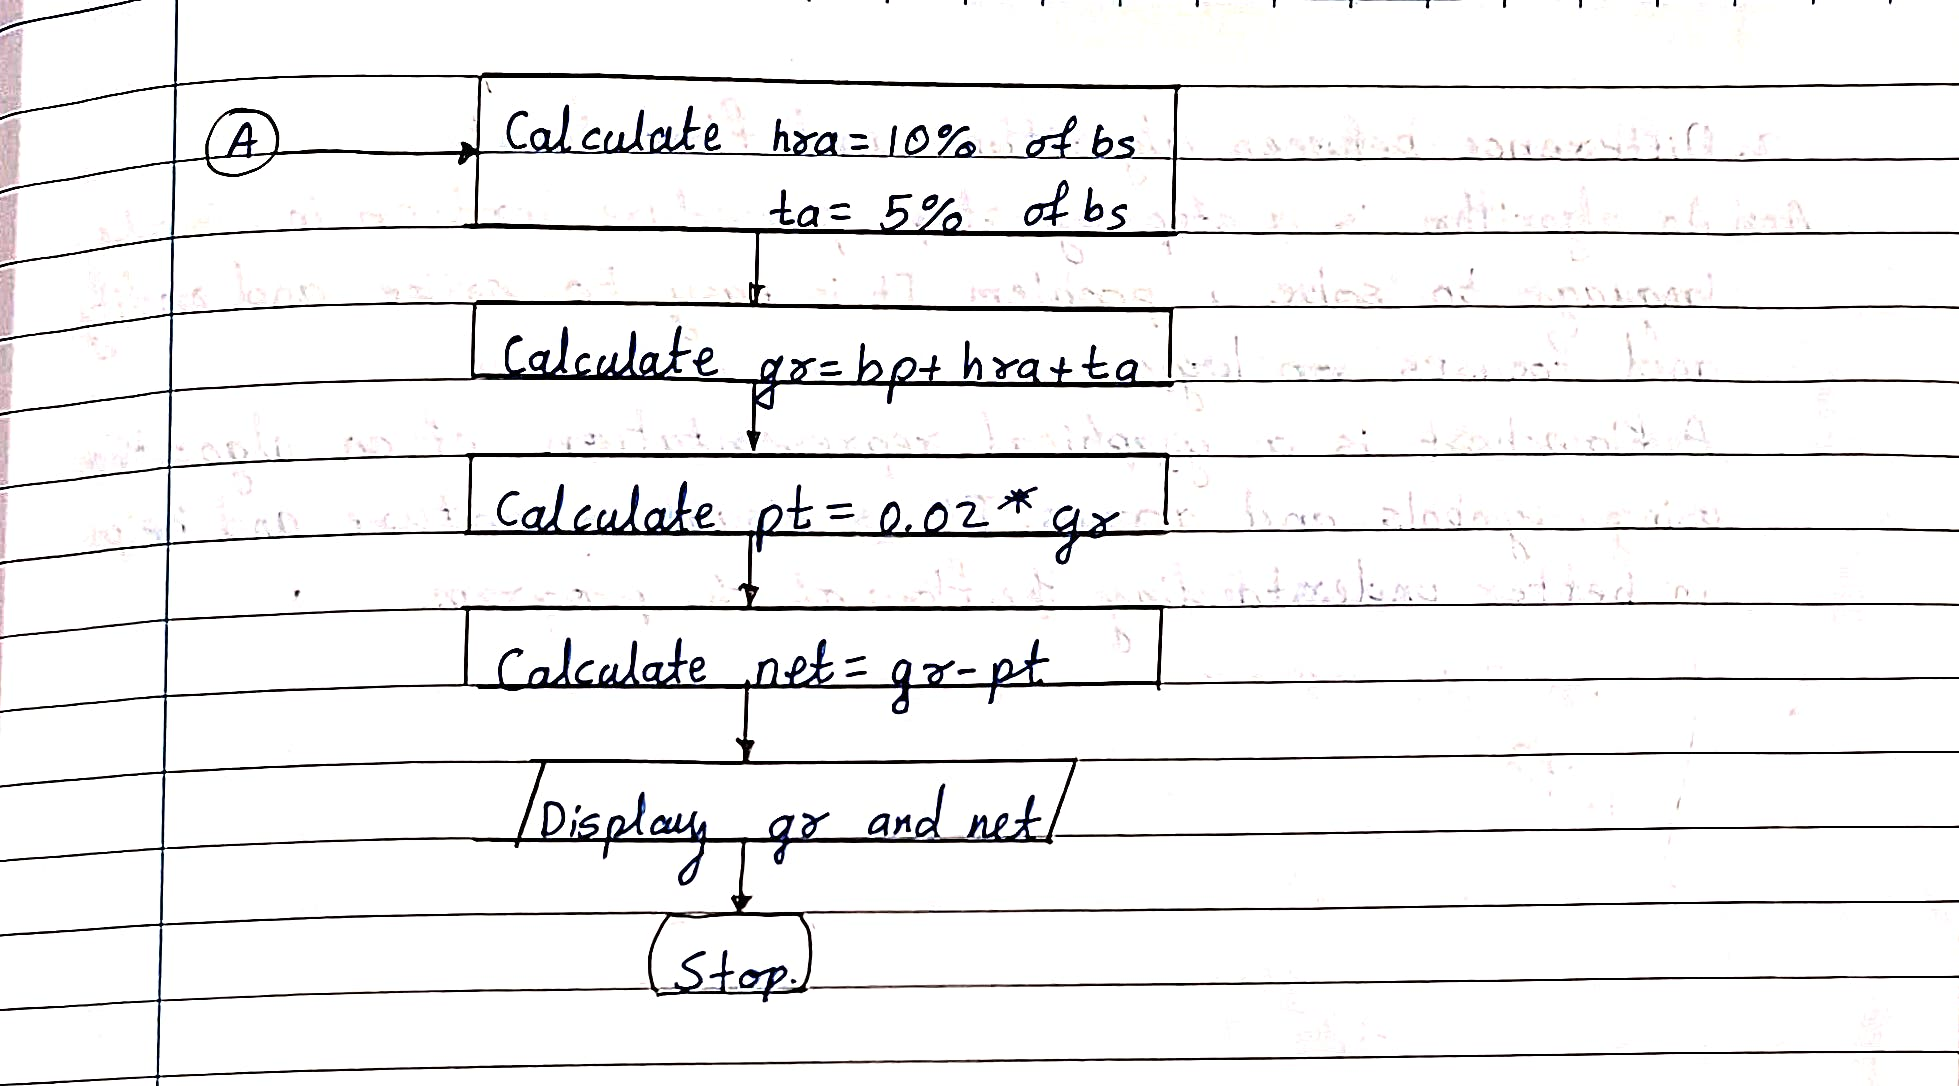 A
Calculate hra = 10% of bs
ta = 5% of bs
Calculate gr = bp + hra + ta
Calculate pt = 0.02 * gr
Calculate net = gr - pt
Display gr and net
Stop.